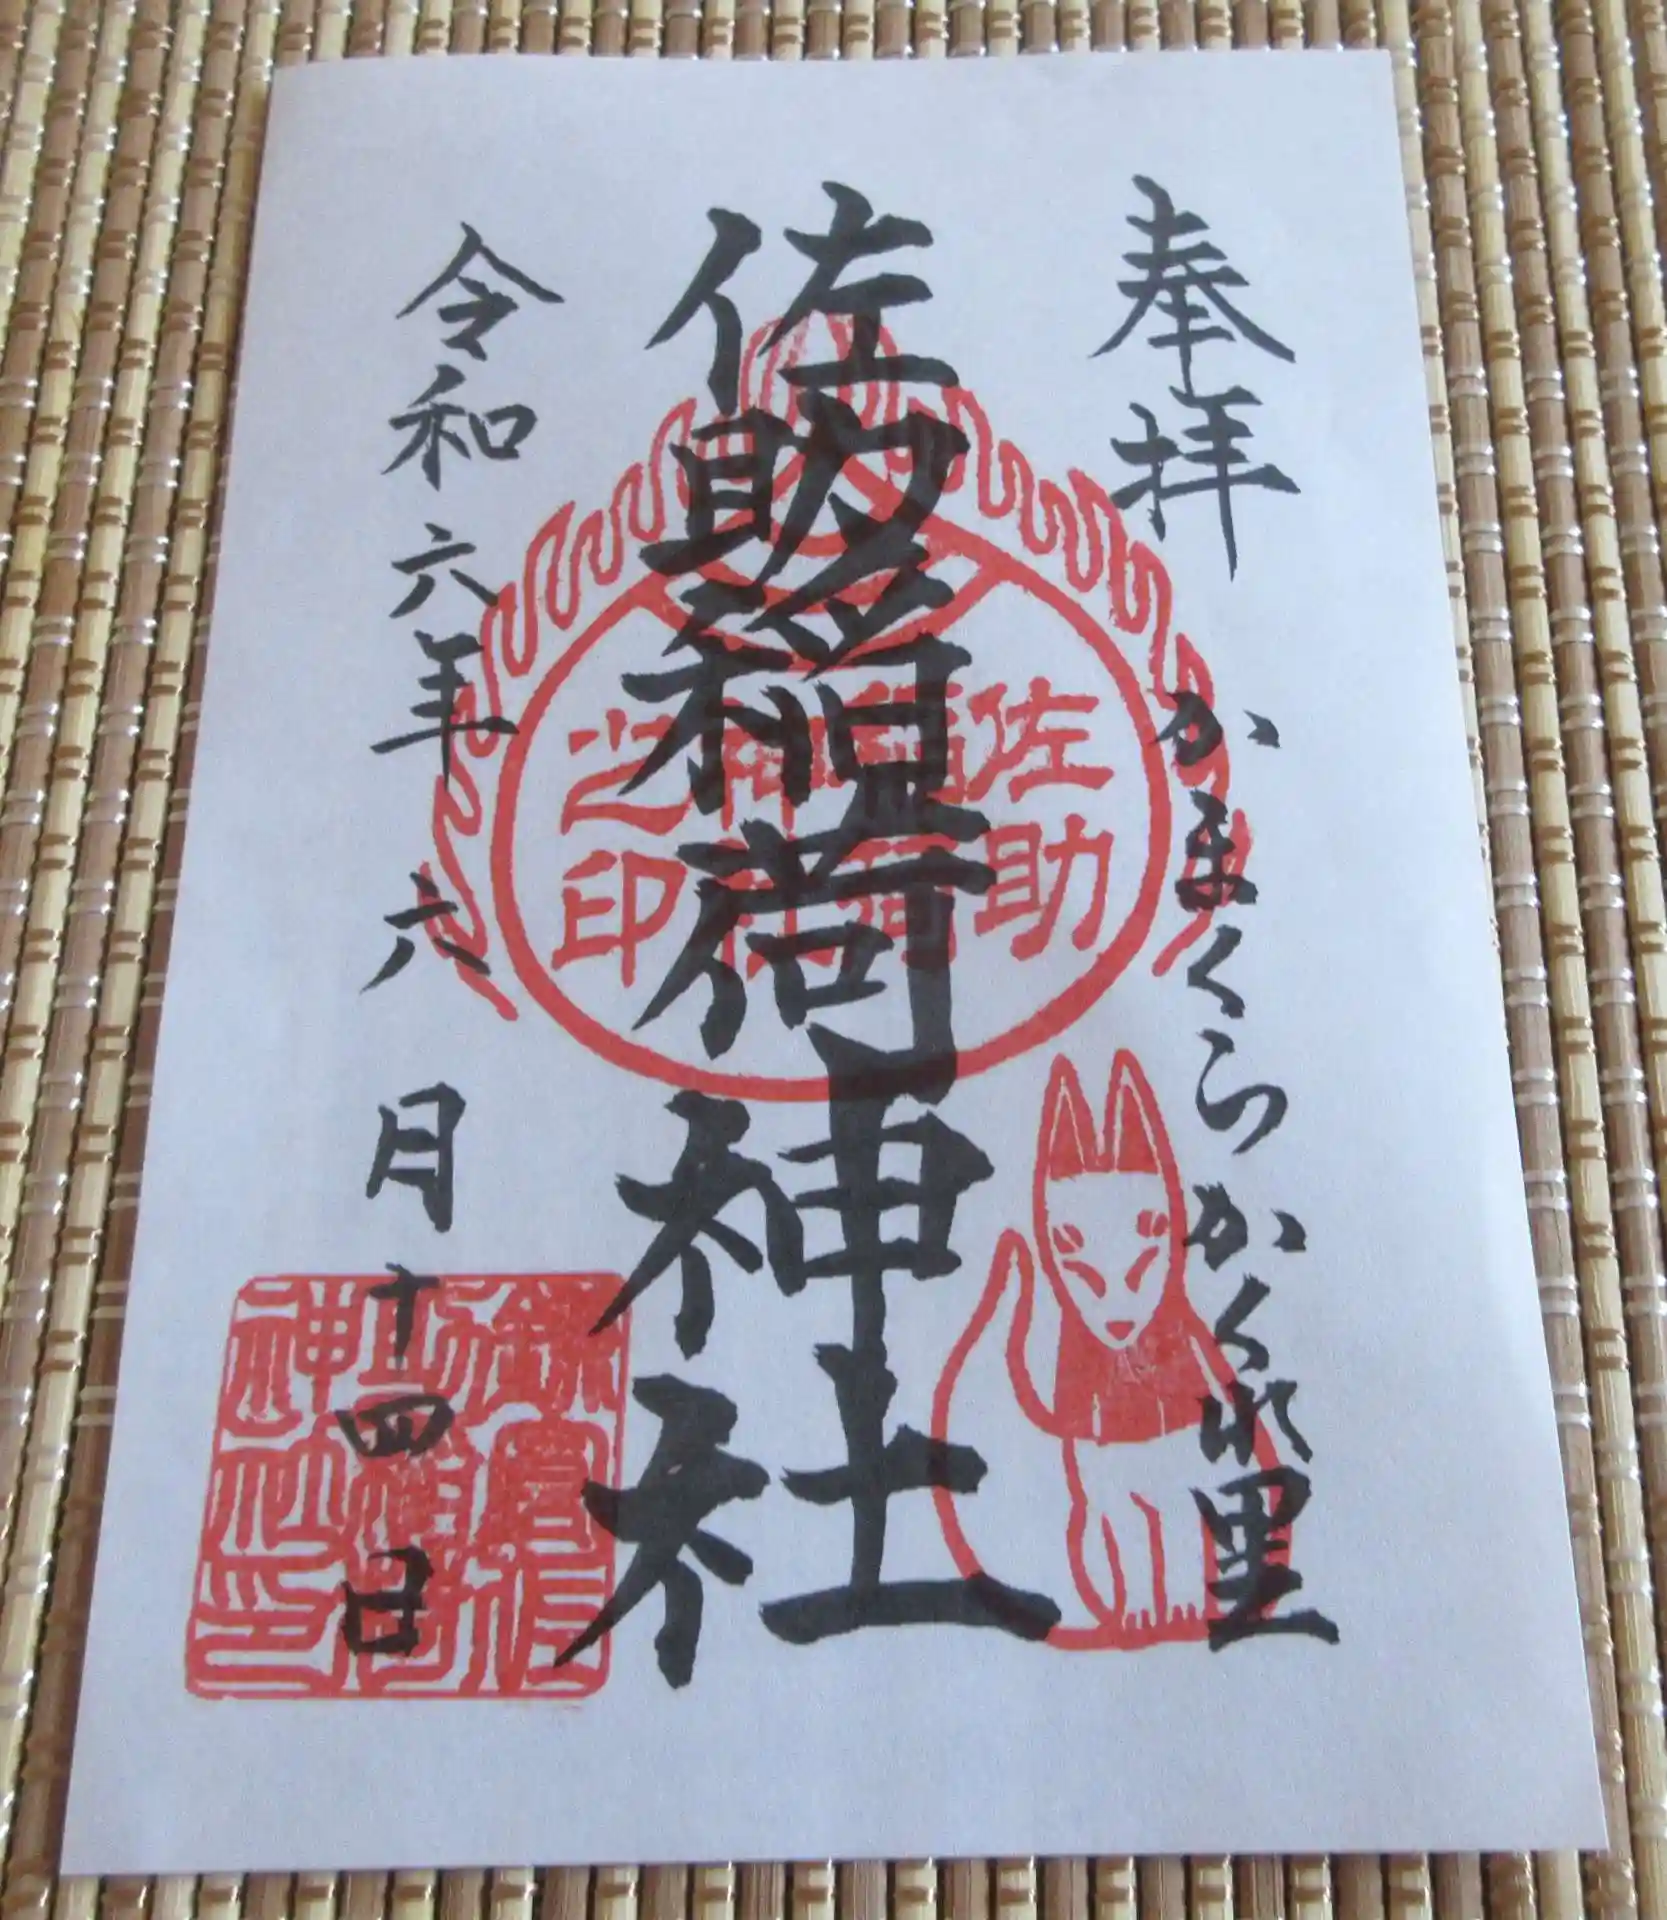 奉拝
かまくらかくれ里
佐助稲荷神社
佐助稲荷神社之印
令和六年六月十四日
鎌倉佐助稲荷神社印